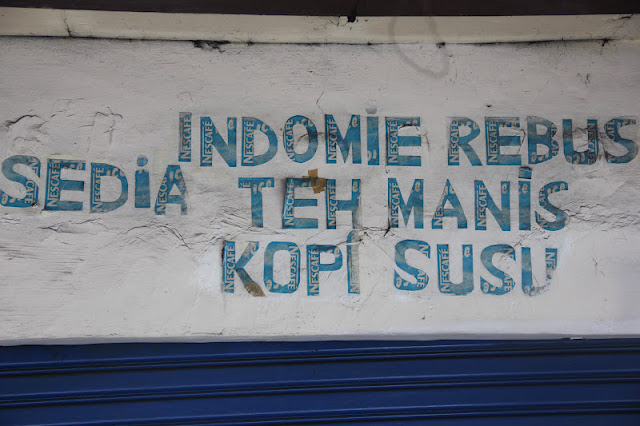 INDOMIE REBUS
SEDIA TEH MANIS
KOPI SUSU